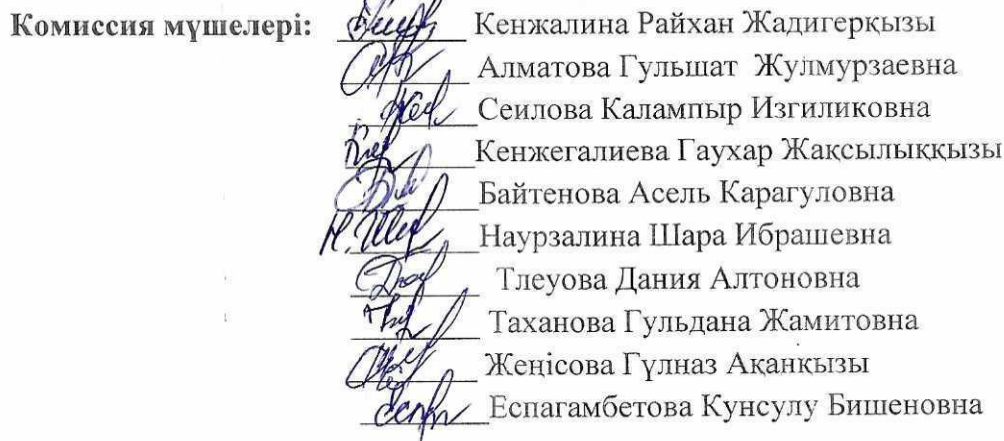 Комиссия мүшелері: Кенжалина Райхан Жадигерқызы
Алматова Гульшат Жулмурзаевна
Сеилова Калампыр Изгиликовна
Кенжегалиева Гаухар Жақсылыққызы
Байтенова Асель Карагуловна
Н. Наурзалина Шара Ибрашевна
Тлеуова Дания Алтоновна
Таханова Гульдана Жамитовна
Жеңісова Гүлназ Ақанқызы
Еспагамбетова Кунсулу Бишеновна